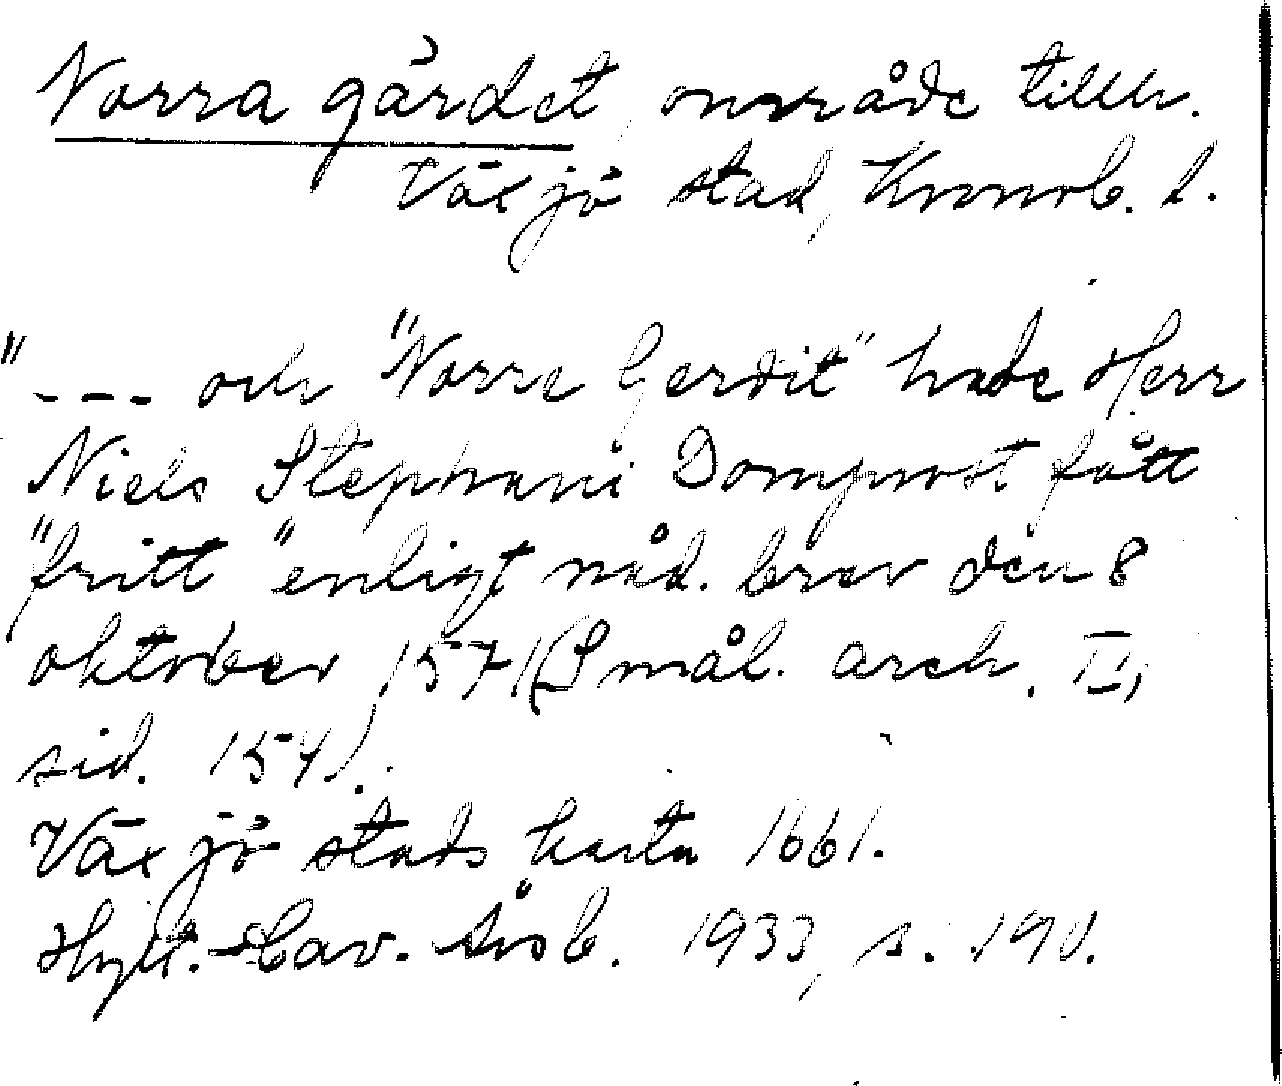 Norra gärdet, område tillh.
Växjö stad, Kronob. l.
"--- och "Norre Gerdit" hade Herr
Niels Stephani Domprost fått
"fritt" enligt nåd. brev den 8
oktober 1571 (Smål. arch. II,
sid. 154).
Växjö stads karta 1661.
Hylt.-Cav. Årsb. 1933, s. 190.